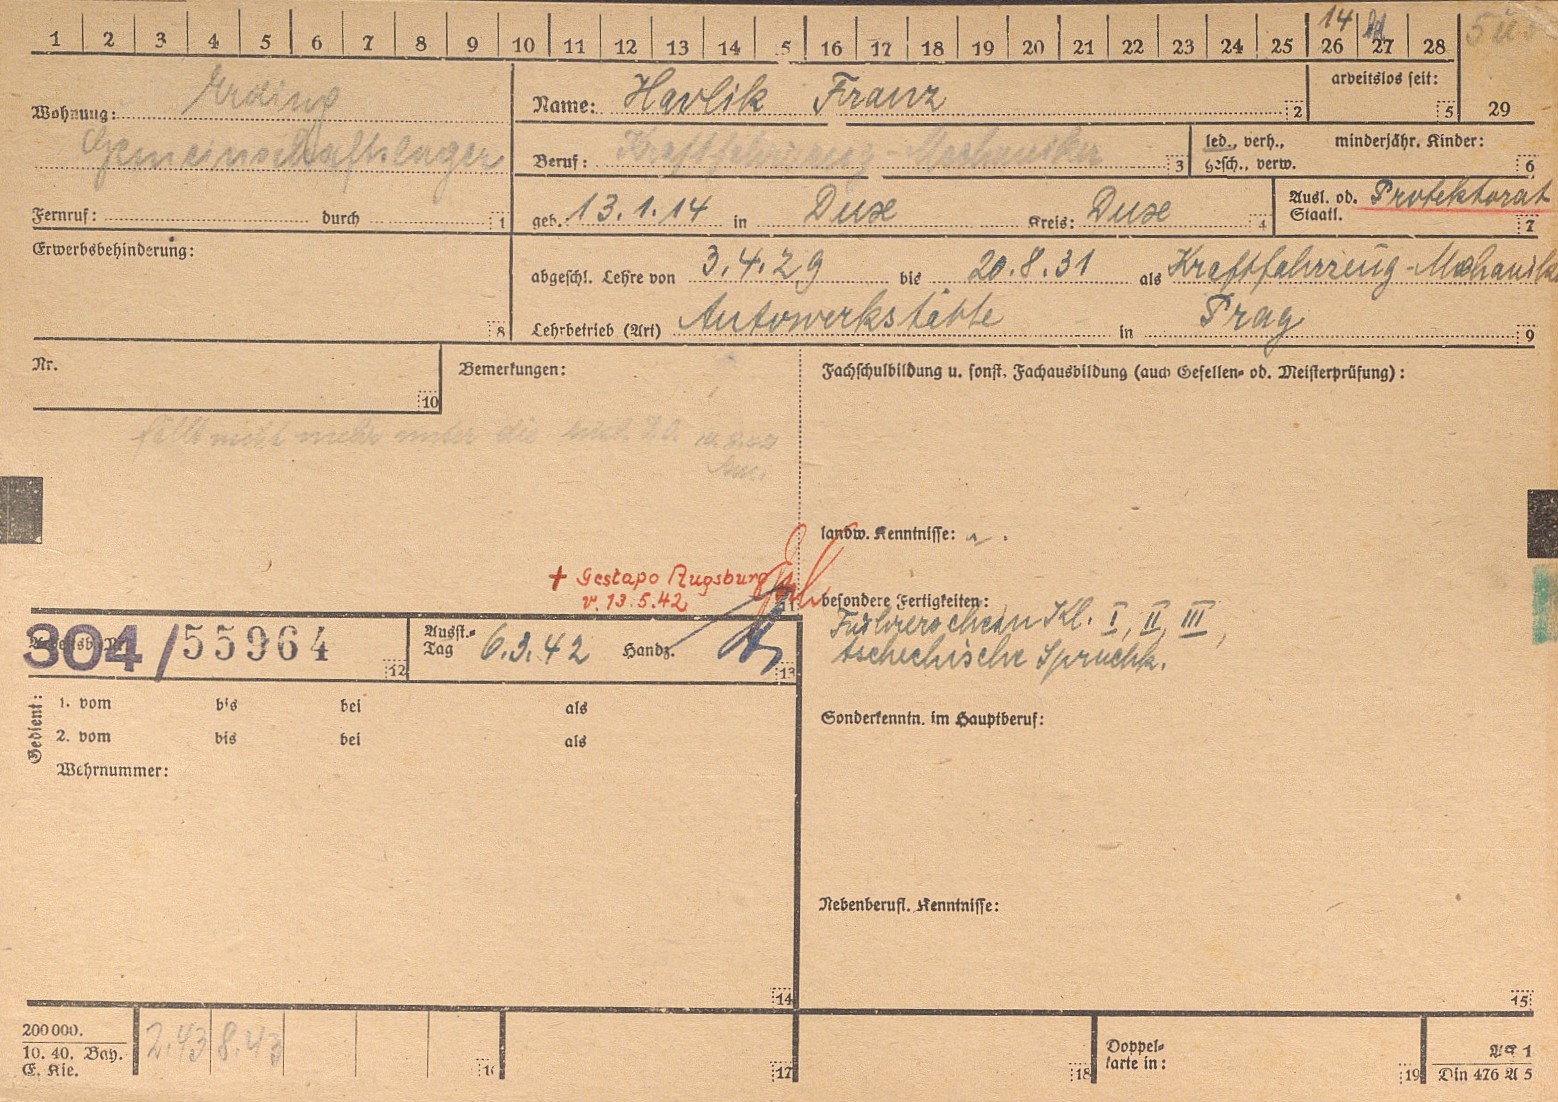 1 2 3 4 5 6 7 8 9 10 11 12 13 14 15 16 17 18 19 20 21 22 23 24 25 26 27 28
14
Wohnung: Erding
Gemeinschaftslager
Fernruf: durch 1
Name: Havlik Franz 2
arbeitslos seit: 5
29
Beruf: Kraftfahrzeug-Mechaniker 3
led., verh., gesch., verw.
minderjähr. Kinder: 6
geb. 13.1.14 in Dux Kreis: Dux 4
Ausl. od. Staatl. Protektorat 7
Erwerbsbehinderung: 8
abgeschl. Lehre von 3.4.29 bis 20.8.31 als Kraftfahrzeug-Mechanik
Lehrbetrieb (Art) Autowerkstätte in Prag 9
Nr. 10
Bemerkungen:
fällt nicht mehr unter die
+ Gestapo Augsburg
v. 13.5.42
11
Fachschulbildung u. sonst. Fachausbildung (auch Gesellen- od. Meisterprüfung):
landw. Kenntnisse:
besondere Fertigkeiten:
Führerschein Kl. I, II, III,
tschechische Sprachk.
Sonderkenntn. im Hauptberuf:
Nebenberufl. Kenntnisse:
15
304/55964 12
Ausst.-Tag 6.3.42 Handz. 13
Gedient:
1. vom bis bei als
2. vom bis bei als
Wehrnummer:
14
200 000.
10. 40. Bay.
E. Kie.
2.43 8.43
16
17
18
Doppel-
karte in: 19
AK 1
Din 476 A 5